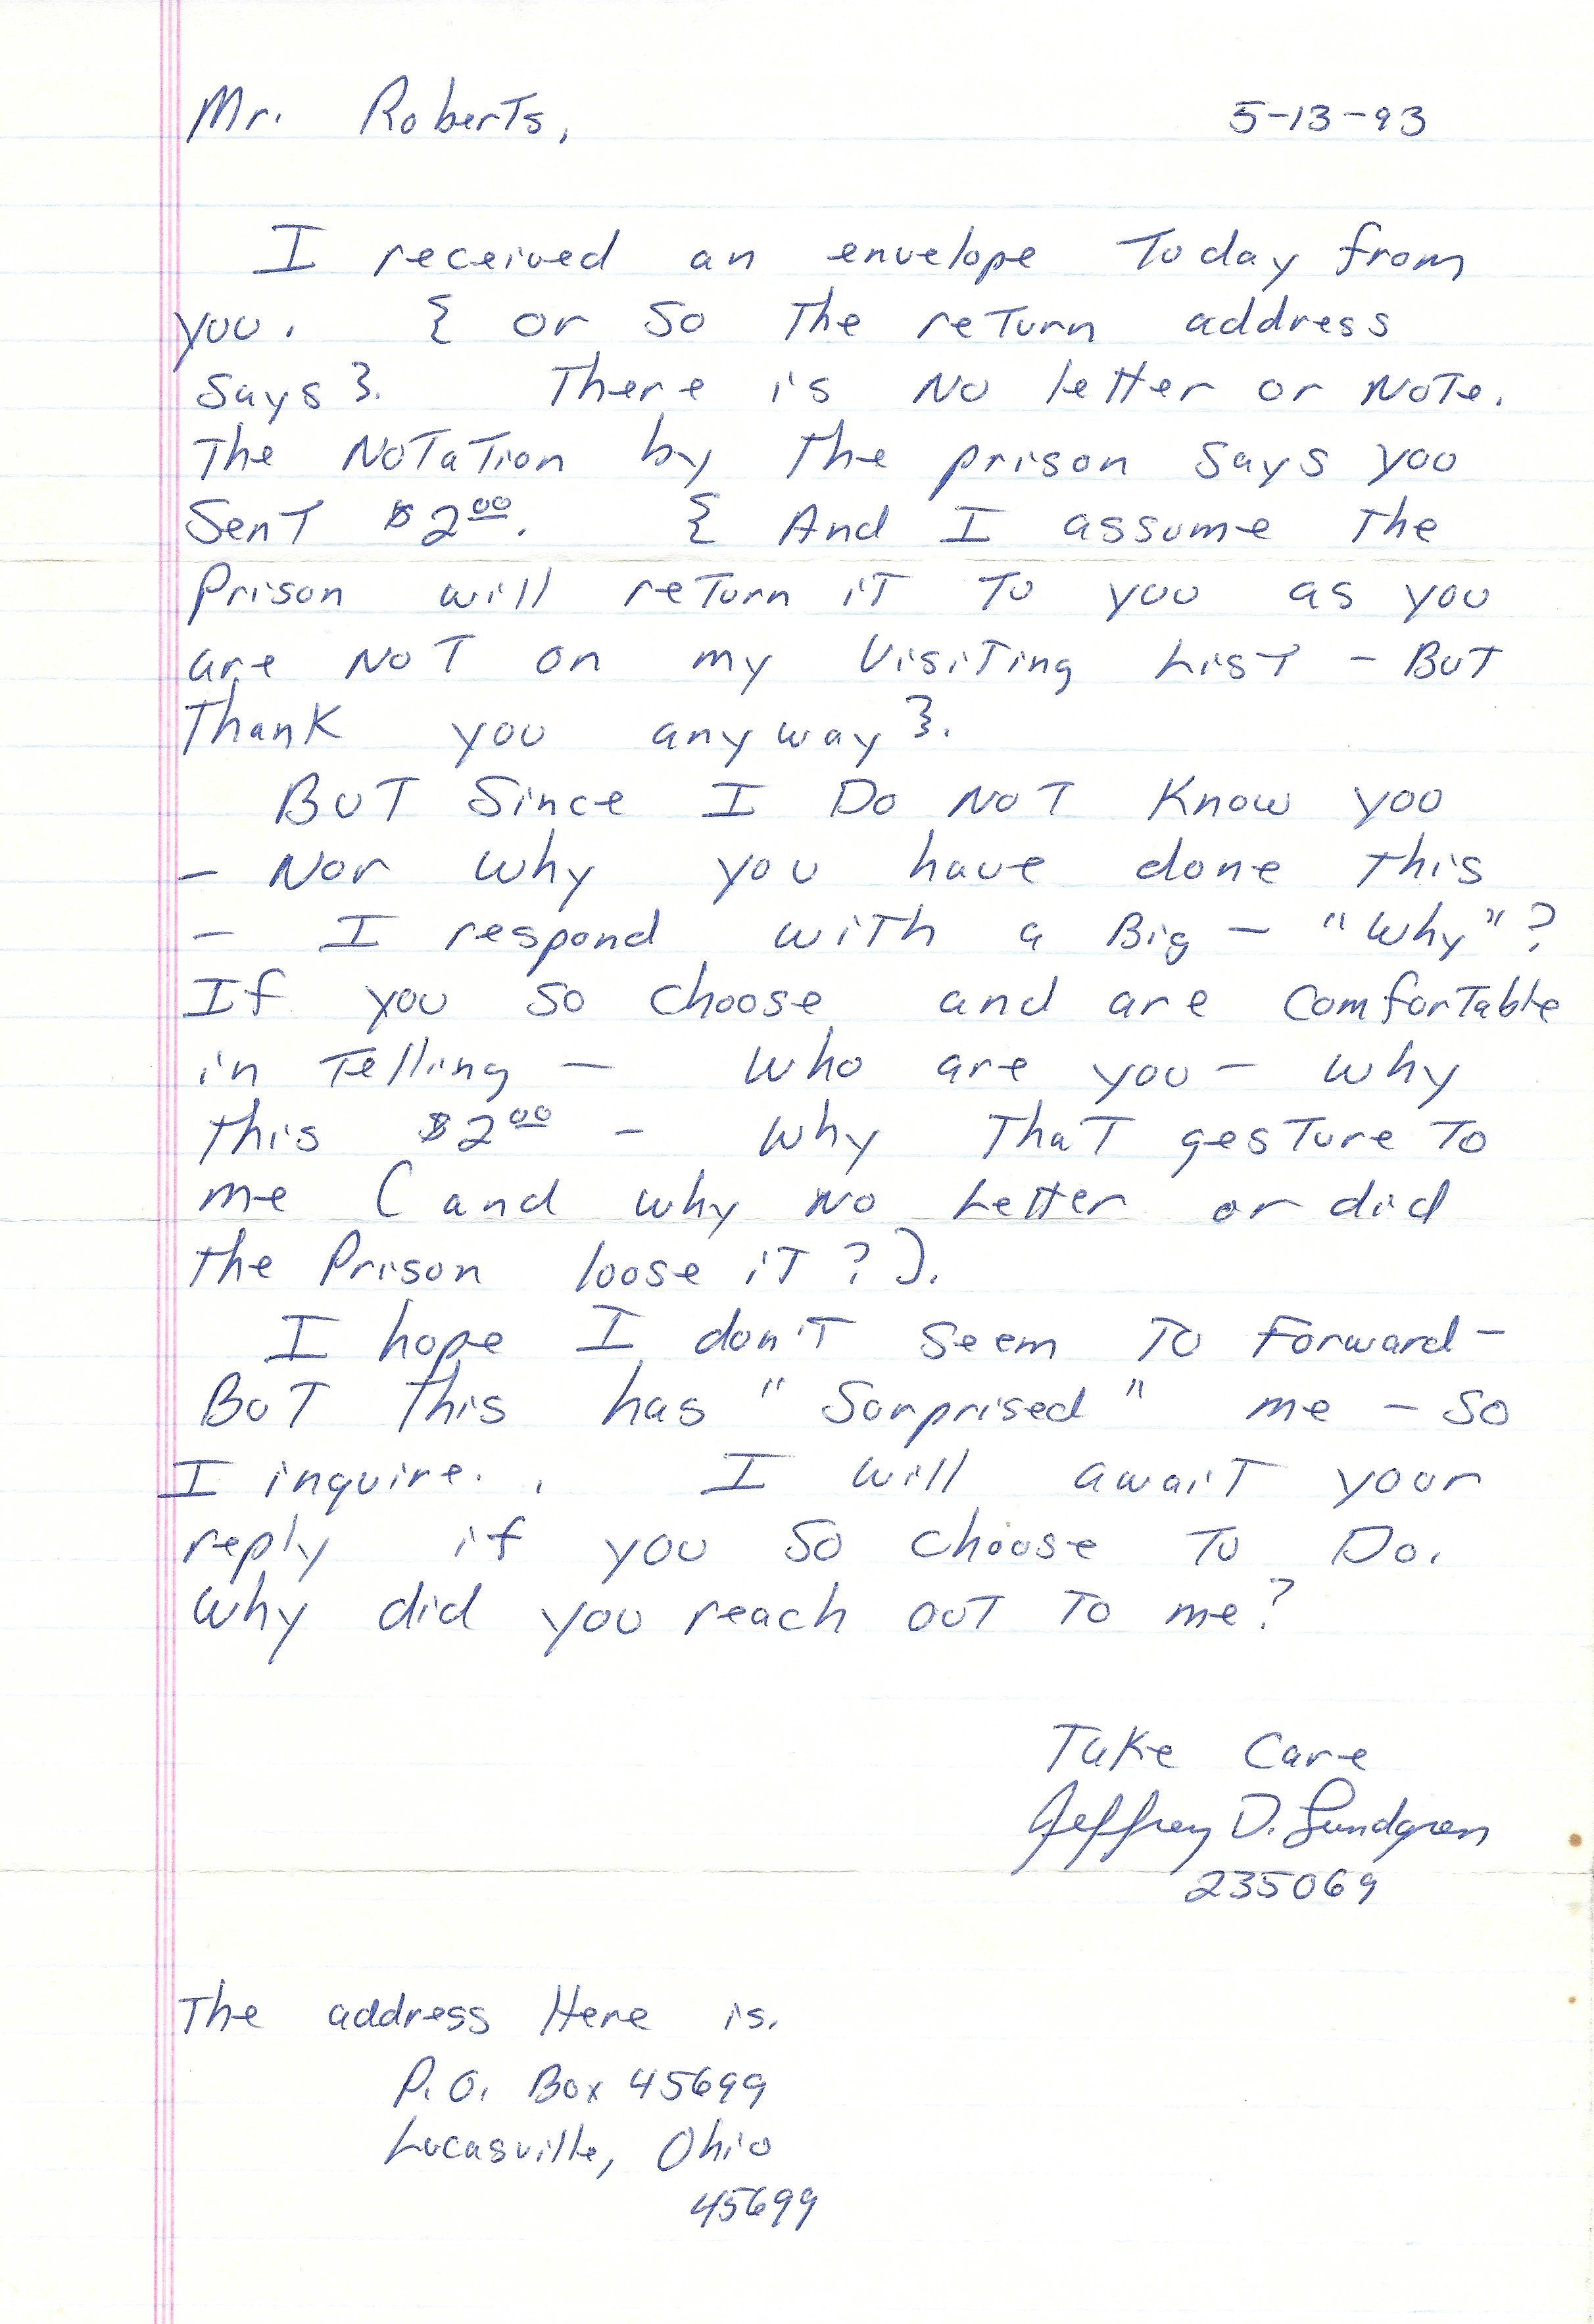 Mr. Roberts, 5-13-93
I received an envelope Today from
you. { or so The return address
says }. There is No letter or Note.
The Notation by The prison says you
Sent $2.00. { And I assume The
Prison will return it To you as you
are NoT on my VisiTing List - BuT
Thank you anyway }.
BuT Since I Do NoT Know you
- Nor why you have done This
- I respond with a Big - "Why"?
If you so choose and are ComforTable
in Telling - who are you - why
This $2.00 - why ThaT gesTure To
me (and why No Letter or did
The Prison loose iT?).
I hope I don'T seem To Forward -
BuT This has "Surprised" me - so
I inquire. . I will awaiT your
reply if you so choose To Do.
Why did you reach ouT To me?
Take Care
Jeffrey D. Lundgren
235069
The address Here is.
P.O. Box 45699
Lucasville, Ohio
45699